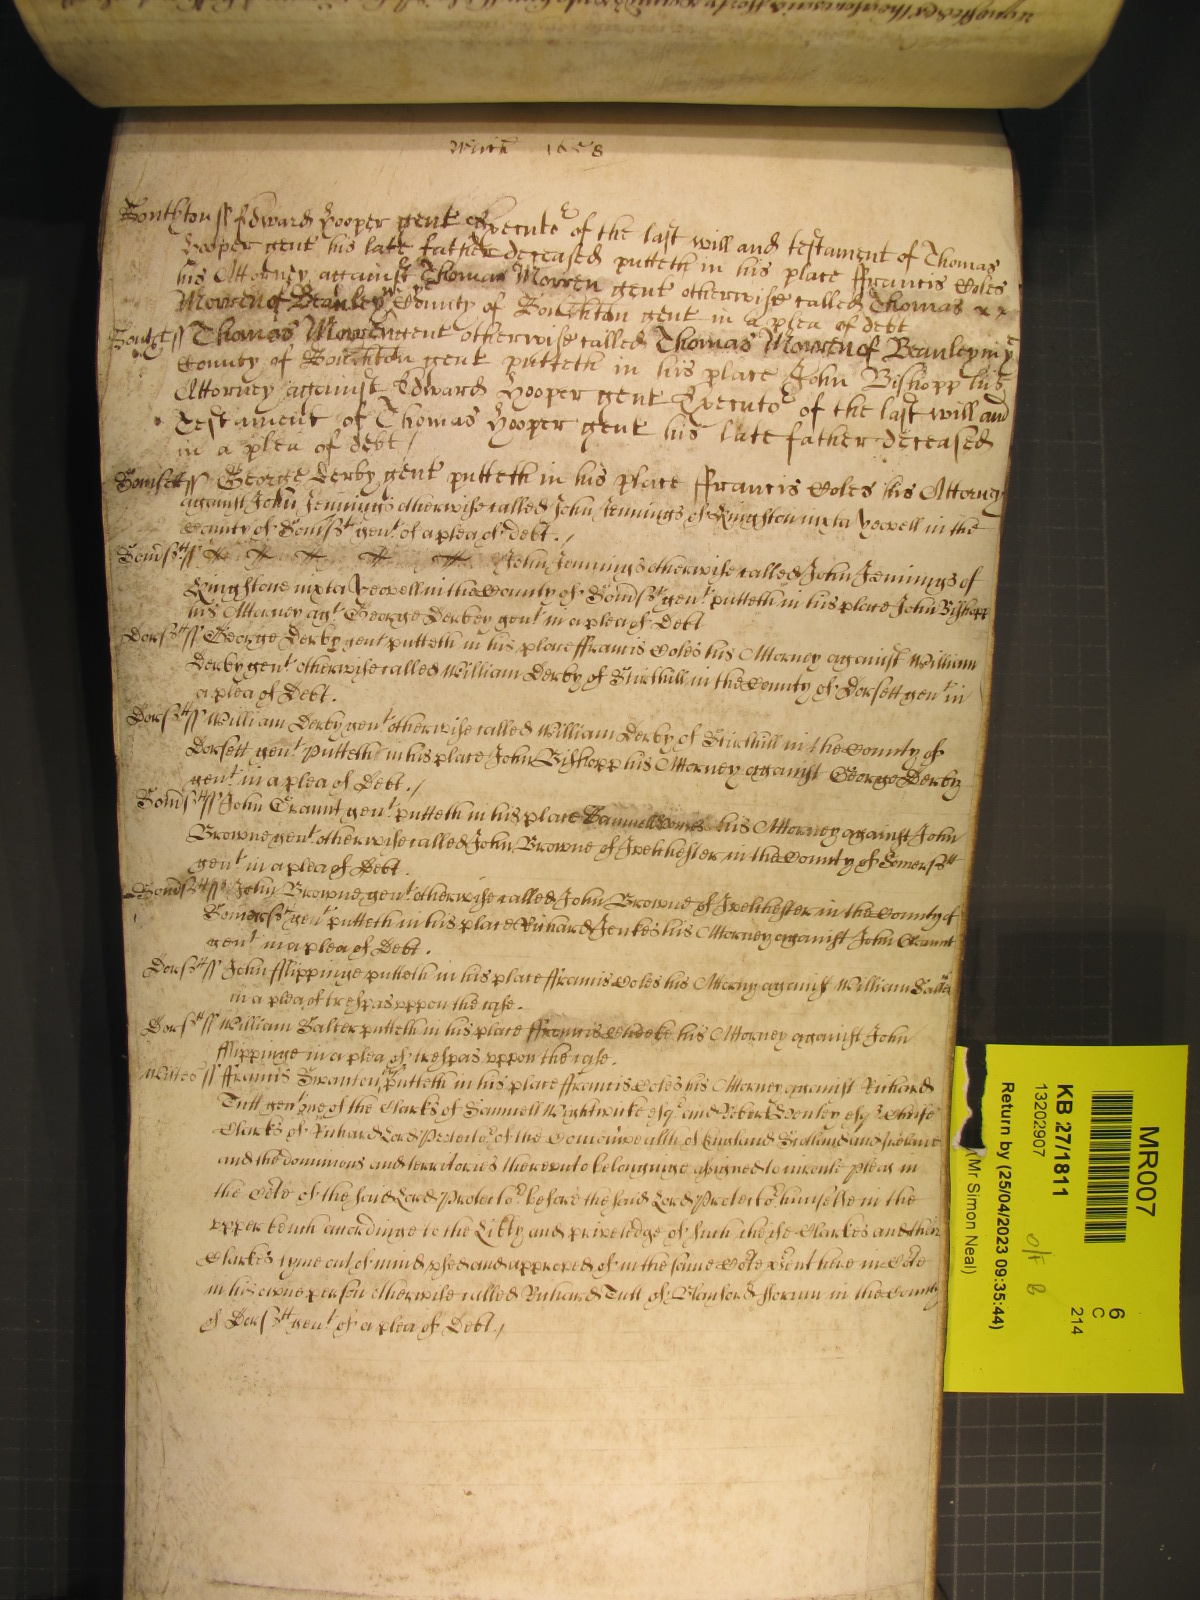 Mich 1658
Southton ss Edward Hooper gent Executor of the last will and testament of Thomas
Hooper gent his late father deceased putteth in his place ffrancis Coles
his Attorney against Thomas Morren gent otherwise called Thomas
Morren of Beauley in the County of Southton gent in a plea of debt
ss Thomas Morren gent otherwise called Thomas Morren of Beauley in ye
County of Southton gent putteth in his place John Bishopp his
Attorney against Edward Hooper gent Executor of the last will and
Testament of Thomas Hooper gent his late father deceased
in a plea of debt /
Somsett ss George Derby gent putteth in his place ffrancis Coles his Attorney
against John Jennings otherwise called John Jennings of Kingston iuxta Yeovell in the
County of Somsst gent of a plea of debt ./
Somsstt ss John Jennings otherwise called John Jennings of
Kingstone iuxta Yeovell in the County of Somsst gent putteth in his place John Bishopp
his Attorney agt George Derbey gent in a plea of Debt
Dorsstt ss George Derby gent putteth in his place ffrancis Coles his Attorney against William
Derby gent otherwise called William Derby of Sturthill in the County of Dorsett gent in
a plea of Debt.
Dorsstt ss William Derby gent otherwise called William Derby of Sturthill in the County of
Dorsett gent putteth in his place John Bishopp his Attorney against George Derby
gent in a plea of Debt ./
Somsstt ss John Traunt gent putteth in his place Samuell his Attorney against John
Browne gent otherwise called John Browne of Ivelchester in the County of Somersstt
gent in a plea of Debt.
Somsstt ss John Browne gent otherwise called John Browne of Ivelchester in the County of
Somersst gent putteth in his place Richard Jenkes his Attorney against John Traunt
gent in a plea of Debt.
Dorsstt ss John fflippinge putteth in his place ffrancis Coles his Attorny against William Salter
in a plea of trespas uppon the case.
Dorsstt ss William Salter putteth in his place ffrancis Cheeke his Attorney against John
fflippinge in a plea of trespas uppon the case.
Wiltes ss ffrancis Swanton esqr putteth in his place ffrancis Coles his Attorney against Richard
Tutt gent one of the Clarks of Samuell Wightwicke esqr and Robert Henley esqr Cheife
Clarks of Richard Lord Protector of the Comonwealth of England Scotland and Ireland
and the dominions and territories thereunto belonginge assigned to inroule pleas in
the Cote of the said Lord Protector before the said Lord Protector himselfe in the
upper bench accordinge to the Libty and priveledge of such cheife Clarkes and their
Clarkes tyme out of mind used and approved of in the same Cote psent here in Cote
in his owne person otherwise called Richard Tutt of Blanford fforum in the County
of Dorsstt gent of a plea of Debt ./
MR007
KB 27/1811
13202907
Return by (25/04/2023 09:35:44)
(Mr Simon Neal)
6
C
214
o/f B